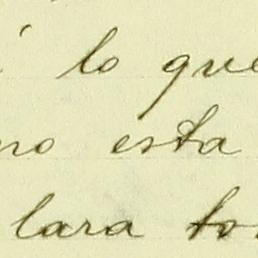 lo que
no esta
lara to